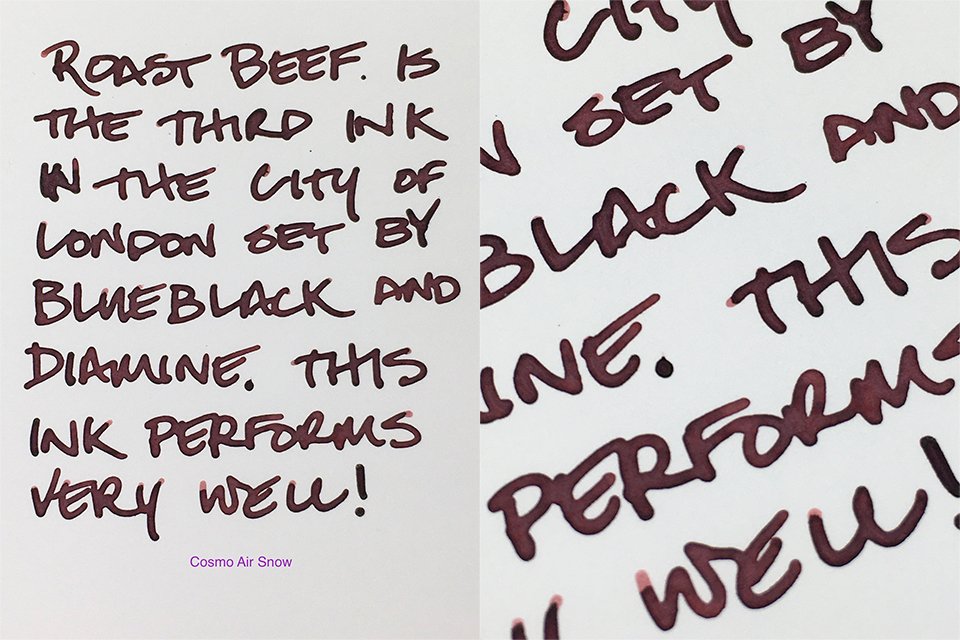 ROAST BEEF. IS
THE THIRD INK
IN THE CITY OF
LONDON SET BY
BLUEBLACK AND
DIAMINE. THIS
INK PERFORMS
VERY WELL!
Cosmo Air Snow
CITY
N SET BY
BLACK AND
INE. THIS
PERFORMS
Y WELL!